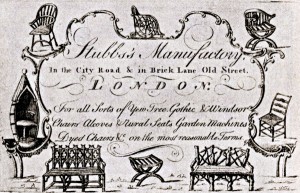 Stubbs's Manufactory,
In the City Road & in Brick Lane Old Street,
LONDON:
For all Sorts of Yew Tree, Gothic & Windsor
Chairs Alcoves Rural Seats Garden Machines
Dyed Chairs &c. on the most reasonable Terms.